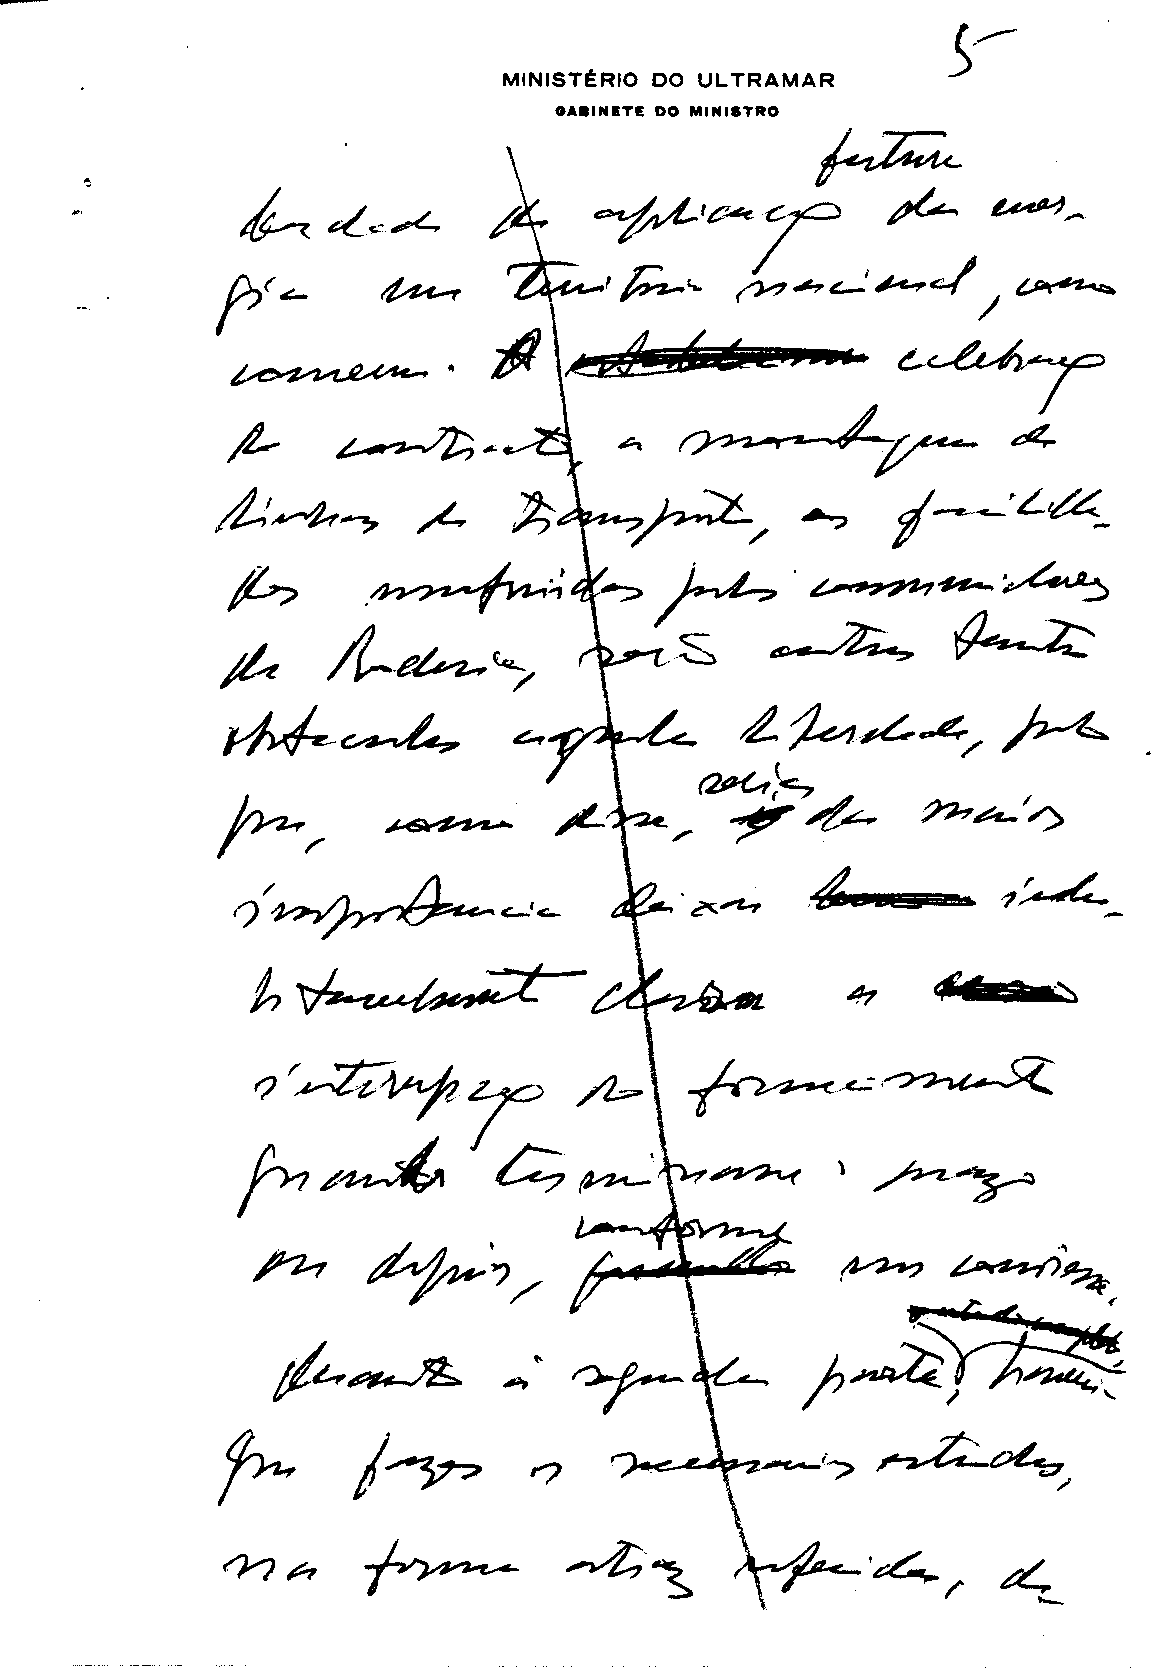 5
MINISTÉRIO DO ULTRAMAR
GABINETE DO MINISTRO
futura
berdade de aplicação da ener-
gia no território nacional, como
convem. A celebração
do contrato, a montagem de
linhas de transporte, as facilida-
des usufruidas pelos consumidores
da Rodesia, serão outros tantos
obstaculos àquela liberdade, pelo
que, como disse, seria da maior
importancia deixar inde-
bitavelmente clara a
interrupção do fornecimento
quando terminasse o prazo
ou depois, conforme nos conviesse.
Quanto à segunda parte, haveria
que fazer os necessarios estudos,
na forma atraz referida, de